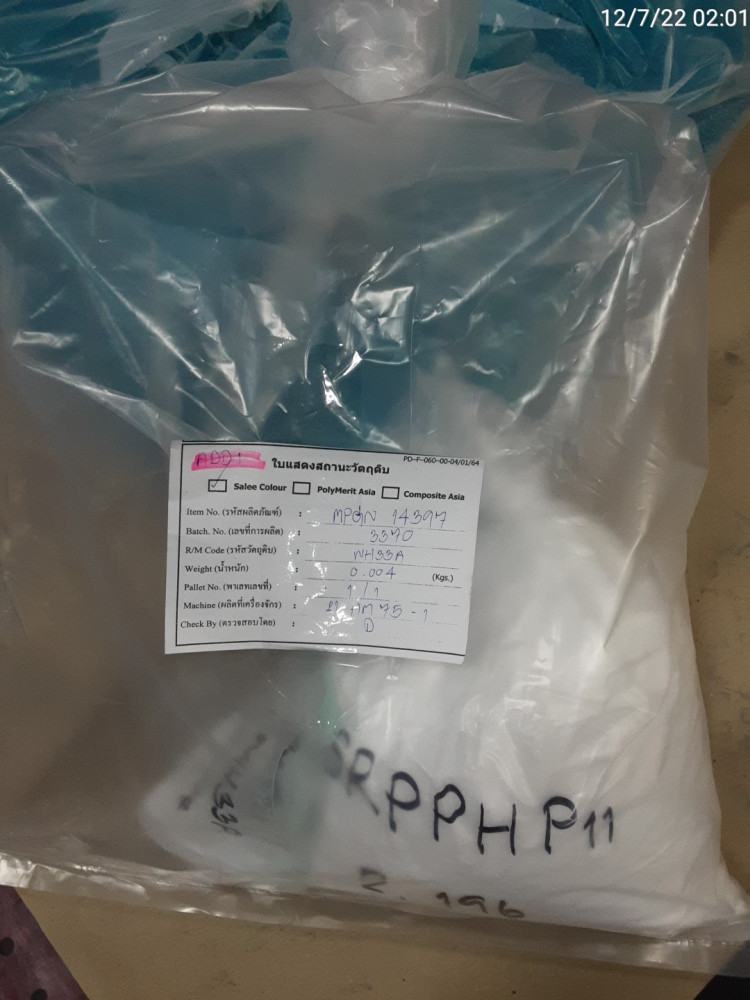 12/7/22 02:01
ADD1
ใบแสดงสถานะวัตถุดิบ
PD-F-060-00-04/01/64
Salee Colour PolyMerit Asia Composite Asia
Item No. (รหัสผลิตภัณฑ์) : 14397
Batch. No. (เลขที่การผลิต) : 3370
R/M Code (รหัสวัตถุดิบ) : NH33A
Weight (น้ำหนัก) : 0.004 (Kgs.)
Pallet No. (พาเลทเลขที่) : 1/1
Machine (ผลิตที่เครื่องจักร) : HM 75-1
Check By (ตรวจสอบโดย) : D
SRPPHP11
2.196